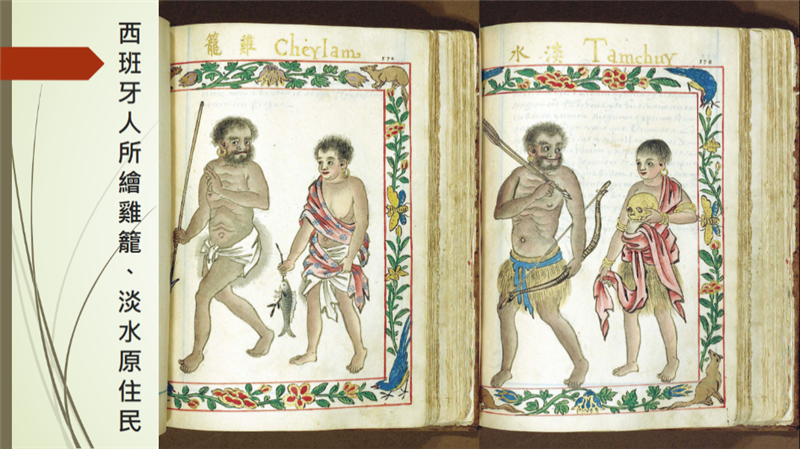 西班牙人所繪雞籠、淡水原住民
籠 雞 Cheylam
水 淡 Tamchuy